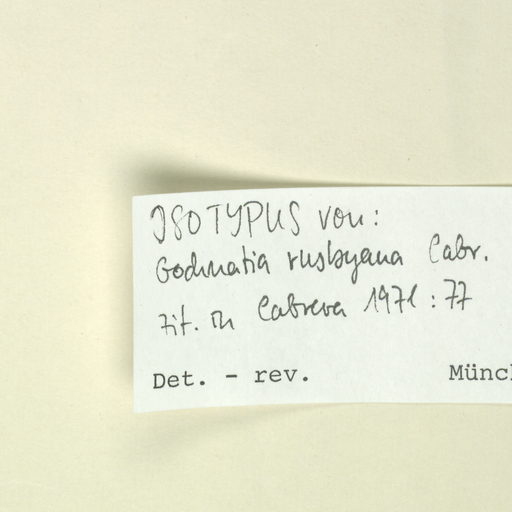 ISOTYPUS von:
Gochnatia rusbyana Cabr.
zit. in Cabrera 1971 : 77
Det. - rev. Münch